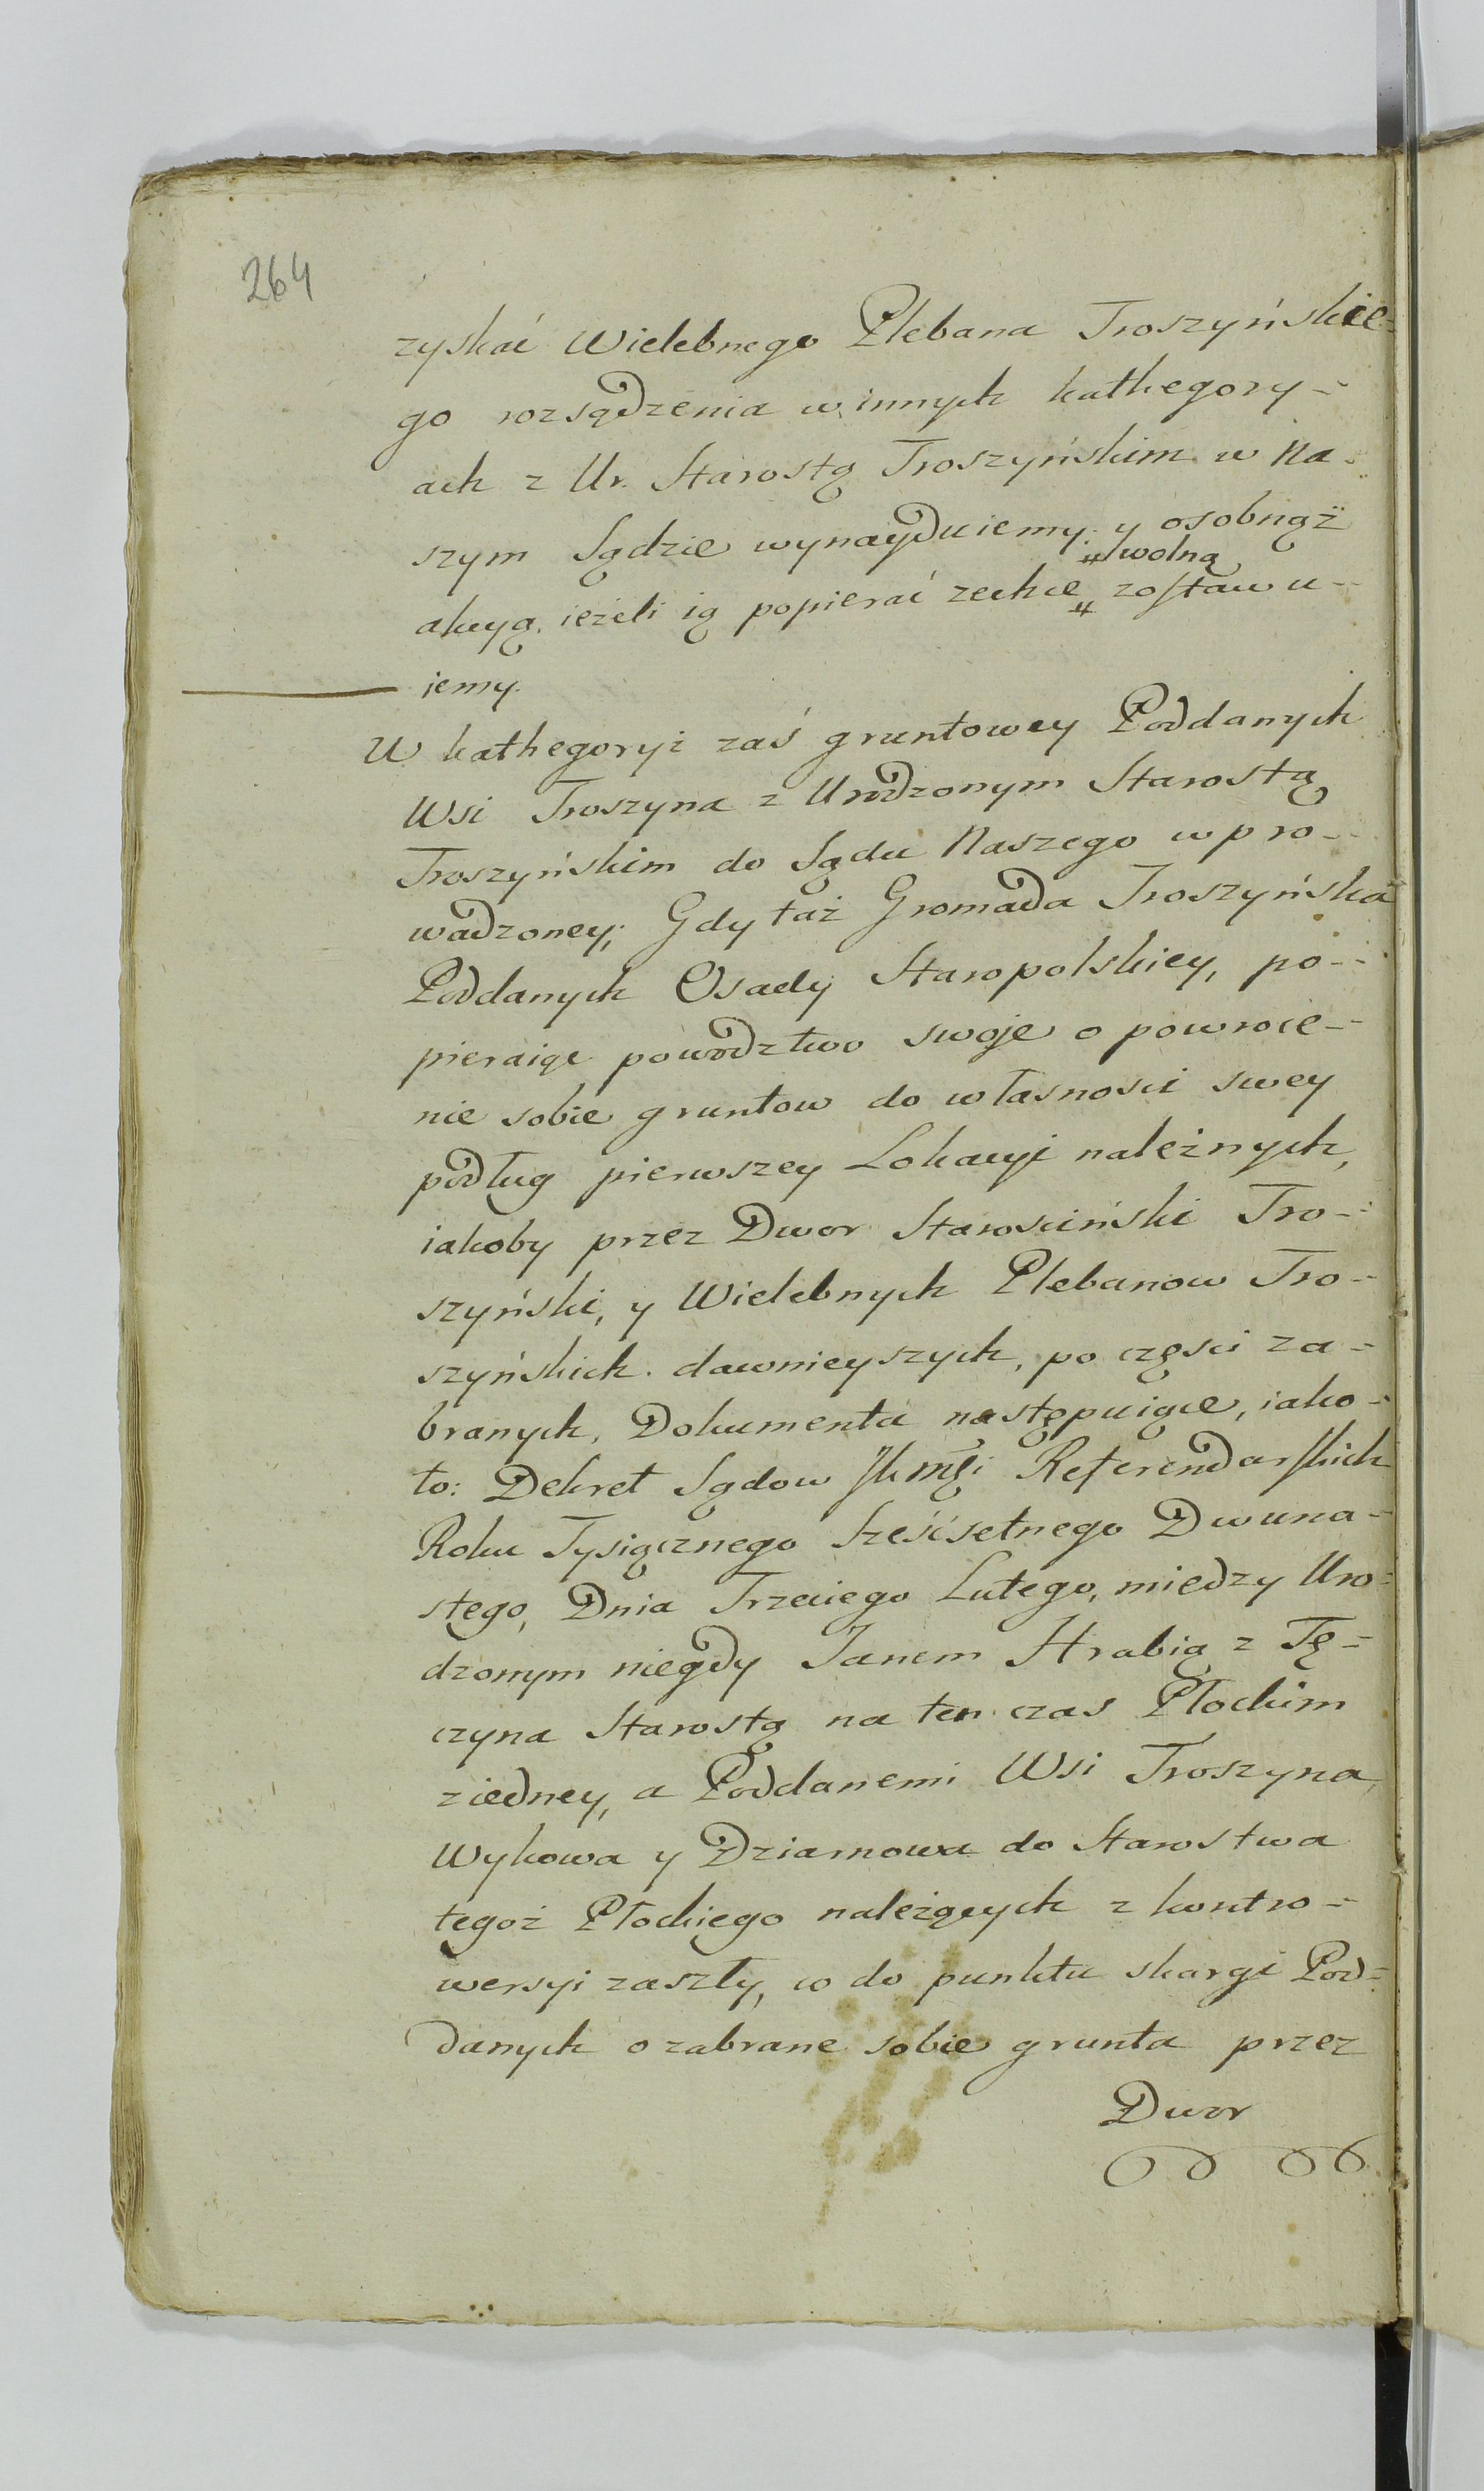 264
zyskać Wielebnego Plebana Troszyńskie-
go rozsądzenia w innych kathegory-
ach z Ur. Starostą Troszyńskim w Na-
szym Sądzie wynayduiemy. y osobnąż
# wolną
akcyą. ieżeli ią popierać zechce # zostawu-
iemy.
W kathegoryi zaś gruntowey Poddanych
Wsi Troszyna z Urodzonym Starostą
Troszyńskim do Sądu Naszego wpro-
wadzoney; Gdy taż Gromada Troszyńska
Poddanych Osady Staropolskiey, po-
pieraiąc powodztwo swoje o powroce-
nie sobie gruntow do własnosci swey
podług pierwszey Lokacyi należnych,
iakoby przez Dwor Starosciński Tro-
szyński, y Wielebnych Plebanow Tro-
szyńskich. dawnieyszych, po częsci za-
branych, Dokumenta następuiące, iako-
to: Dekret Sądow Referendarskich
Roku Tysiącznego Sześćsetnego Dwuna-
stego, Dnia Trzeciego Lutego, między Uro-
dzonym niegdy Janem Hrabią z Tę-
czyna Starostą na ten czas Płockim
z iedney, a Poddanemi Wsi Troszyna,
Wykowa y Dziarnowa do Starostwa
tegoż Płockiego należących z kontro-
wersyi zaszły, co do punktu skargi Pod-
danych o zabrane sobie grunta przez
Dwor